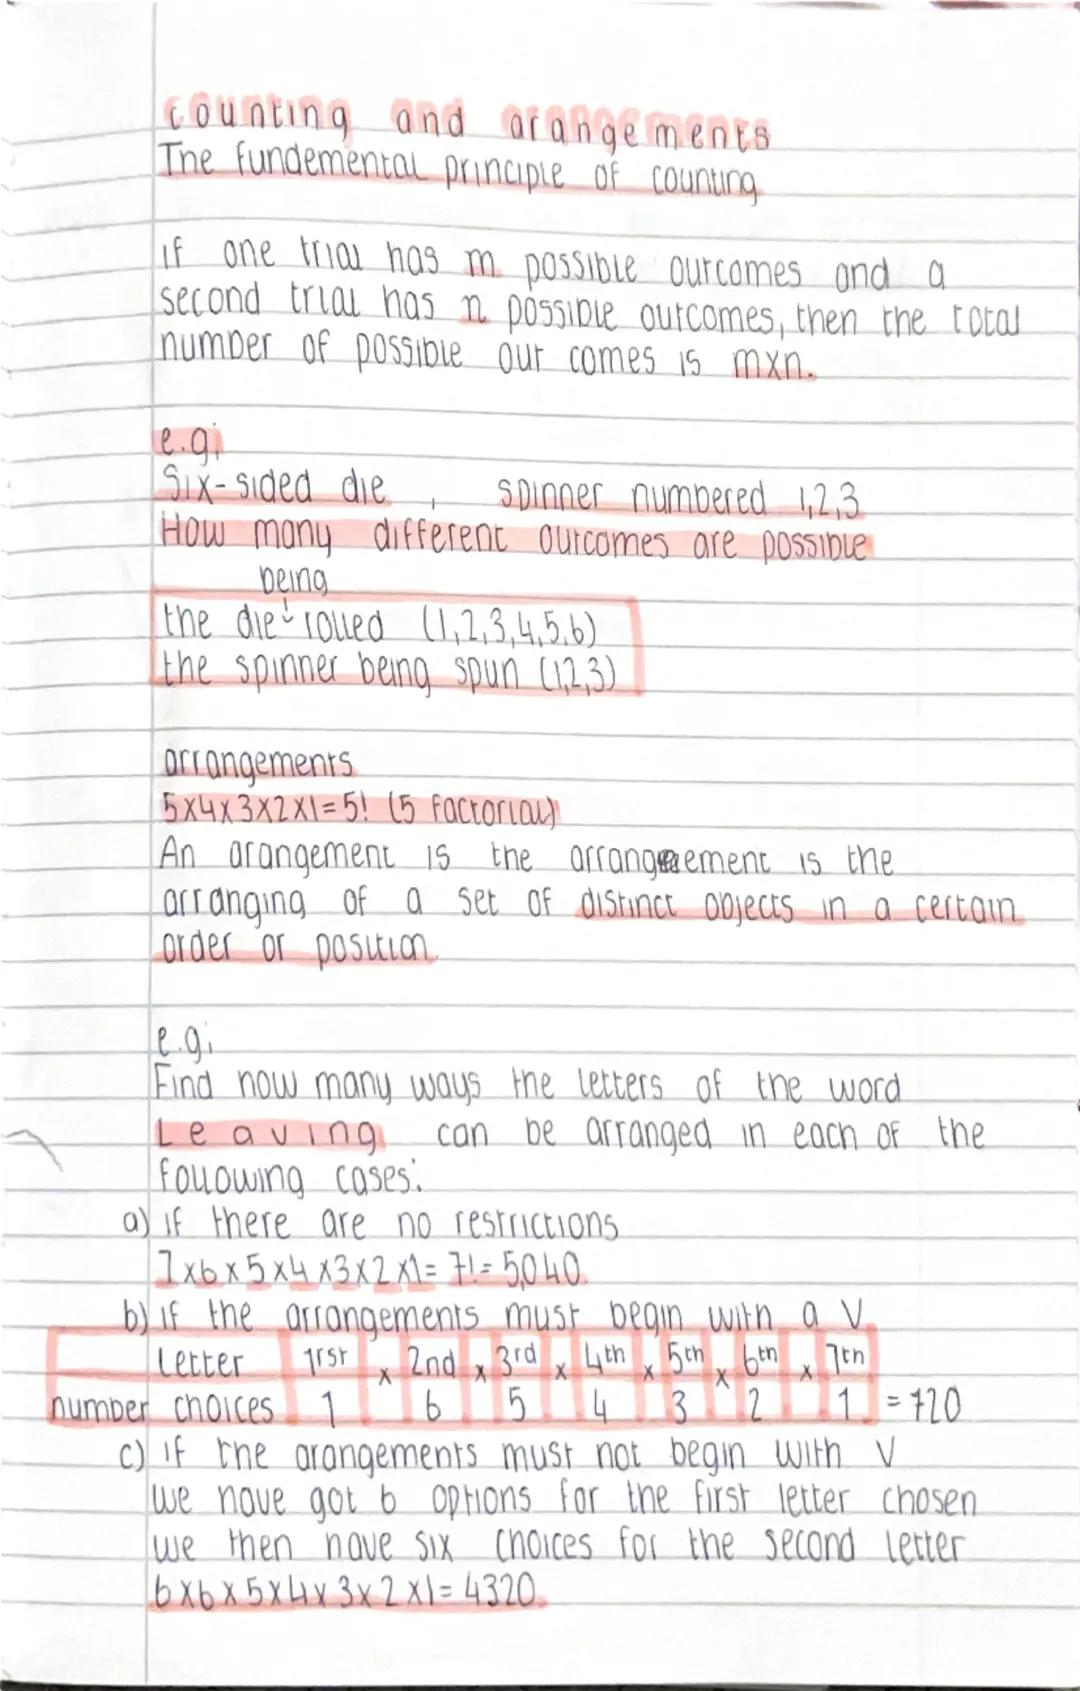 counting and arangements
The fundemental principle of counting
if one trial has m possible outcomes and a
second trial has n possible outcomes, then the total
number of possible out comes is mxn.
e.g.
Six-sided die , spinner numbered 1,2,3
How many different outcomes are possible
being
the die rolled (1,2,3,4,5,6)
the spinner being spun (1,2,3)
arrangements
5x4x3x2x1=5! (5 factorial)
An arangement is the arrangement is the
arranging of a set of distinct objects in a certain
order or position.
e.g.
Find how many ways the letters of the word
Leaving can be arranged in each of the
following cases:
a) if there are no restrictions
7x6x5x4x3x2x1=7!=5,040.
b) if the arrangements must begin with a V
Letter 1rst x 2nd x 3rd x 4th x 5th x 6th x 7th
number choices 1 6 5 4 3 2 1 =720
c) if the arangements must not begin with V
we have got 6 options for the first letter chosen
we then have six choices for the second letter
6x6x5x4x3x2x1=4320.